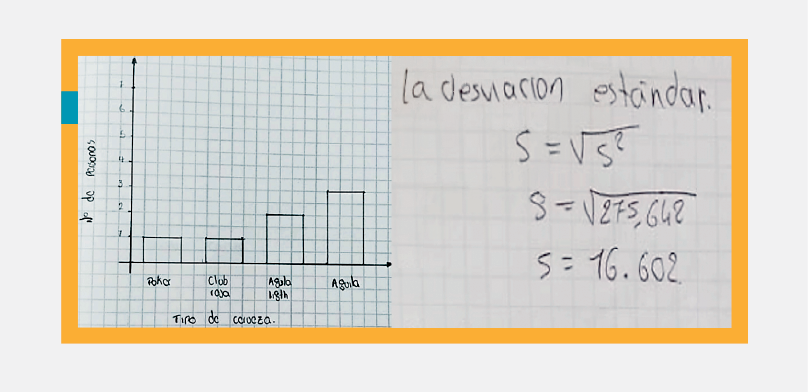 7
6
5
4
3
2
1
Nº de personas
Poker
Club
roja
Aguila
ligth
Aguila
Tipo de cerveza.
la desviacion estándar.
S = √S²
S = √275,642
S = 16.602